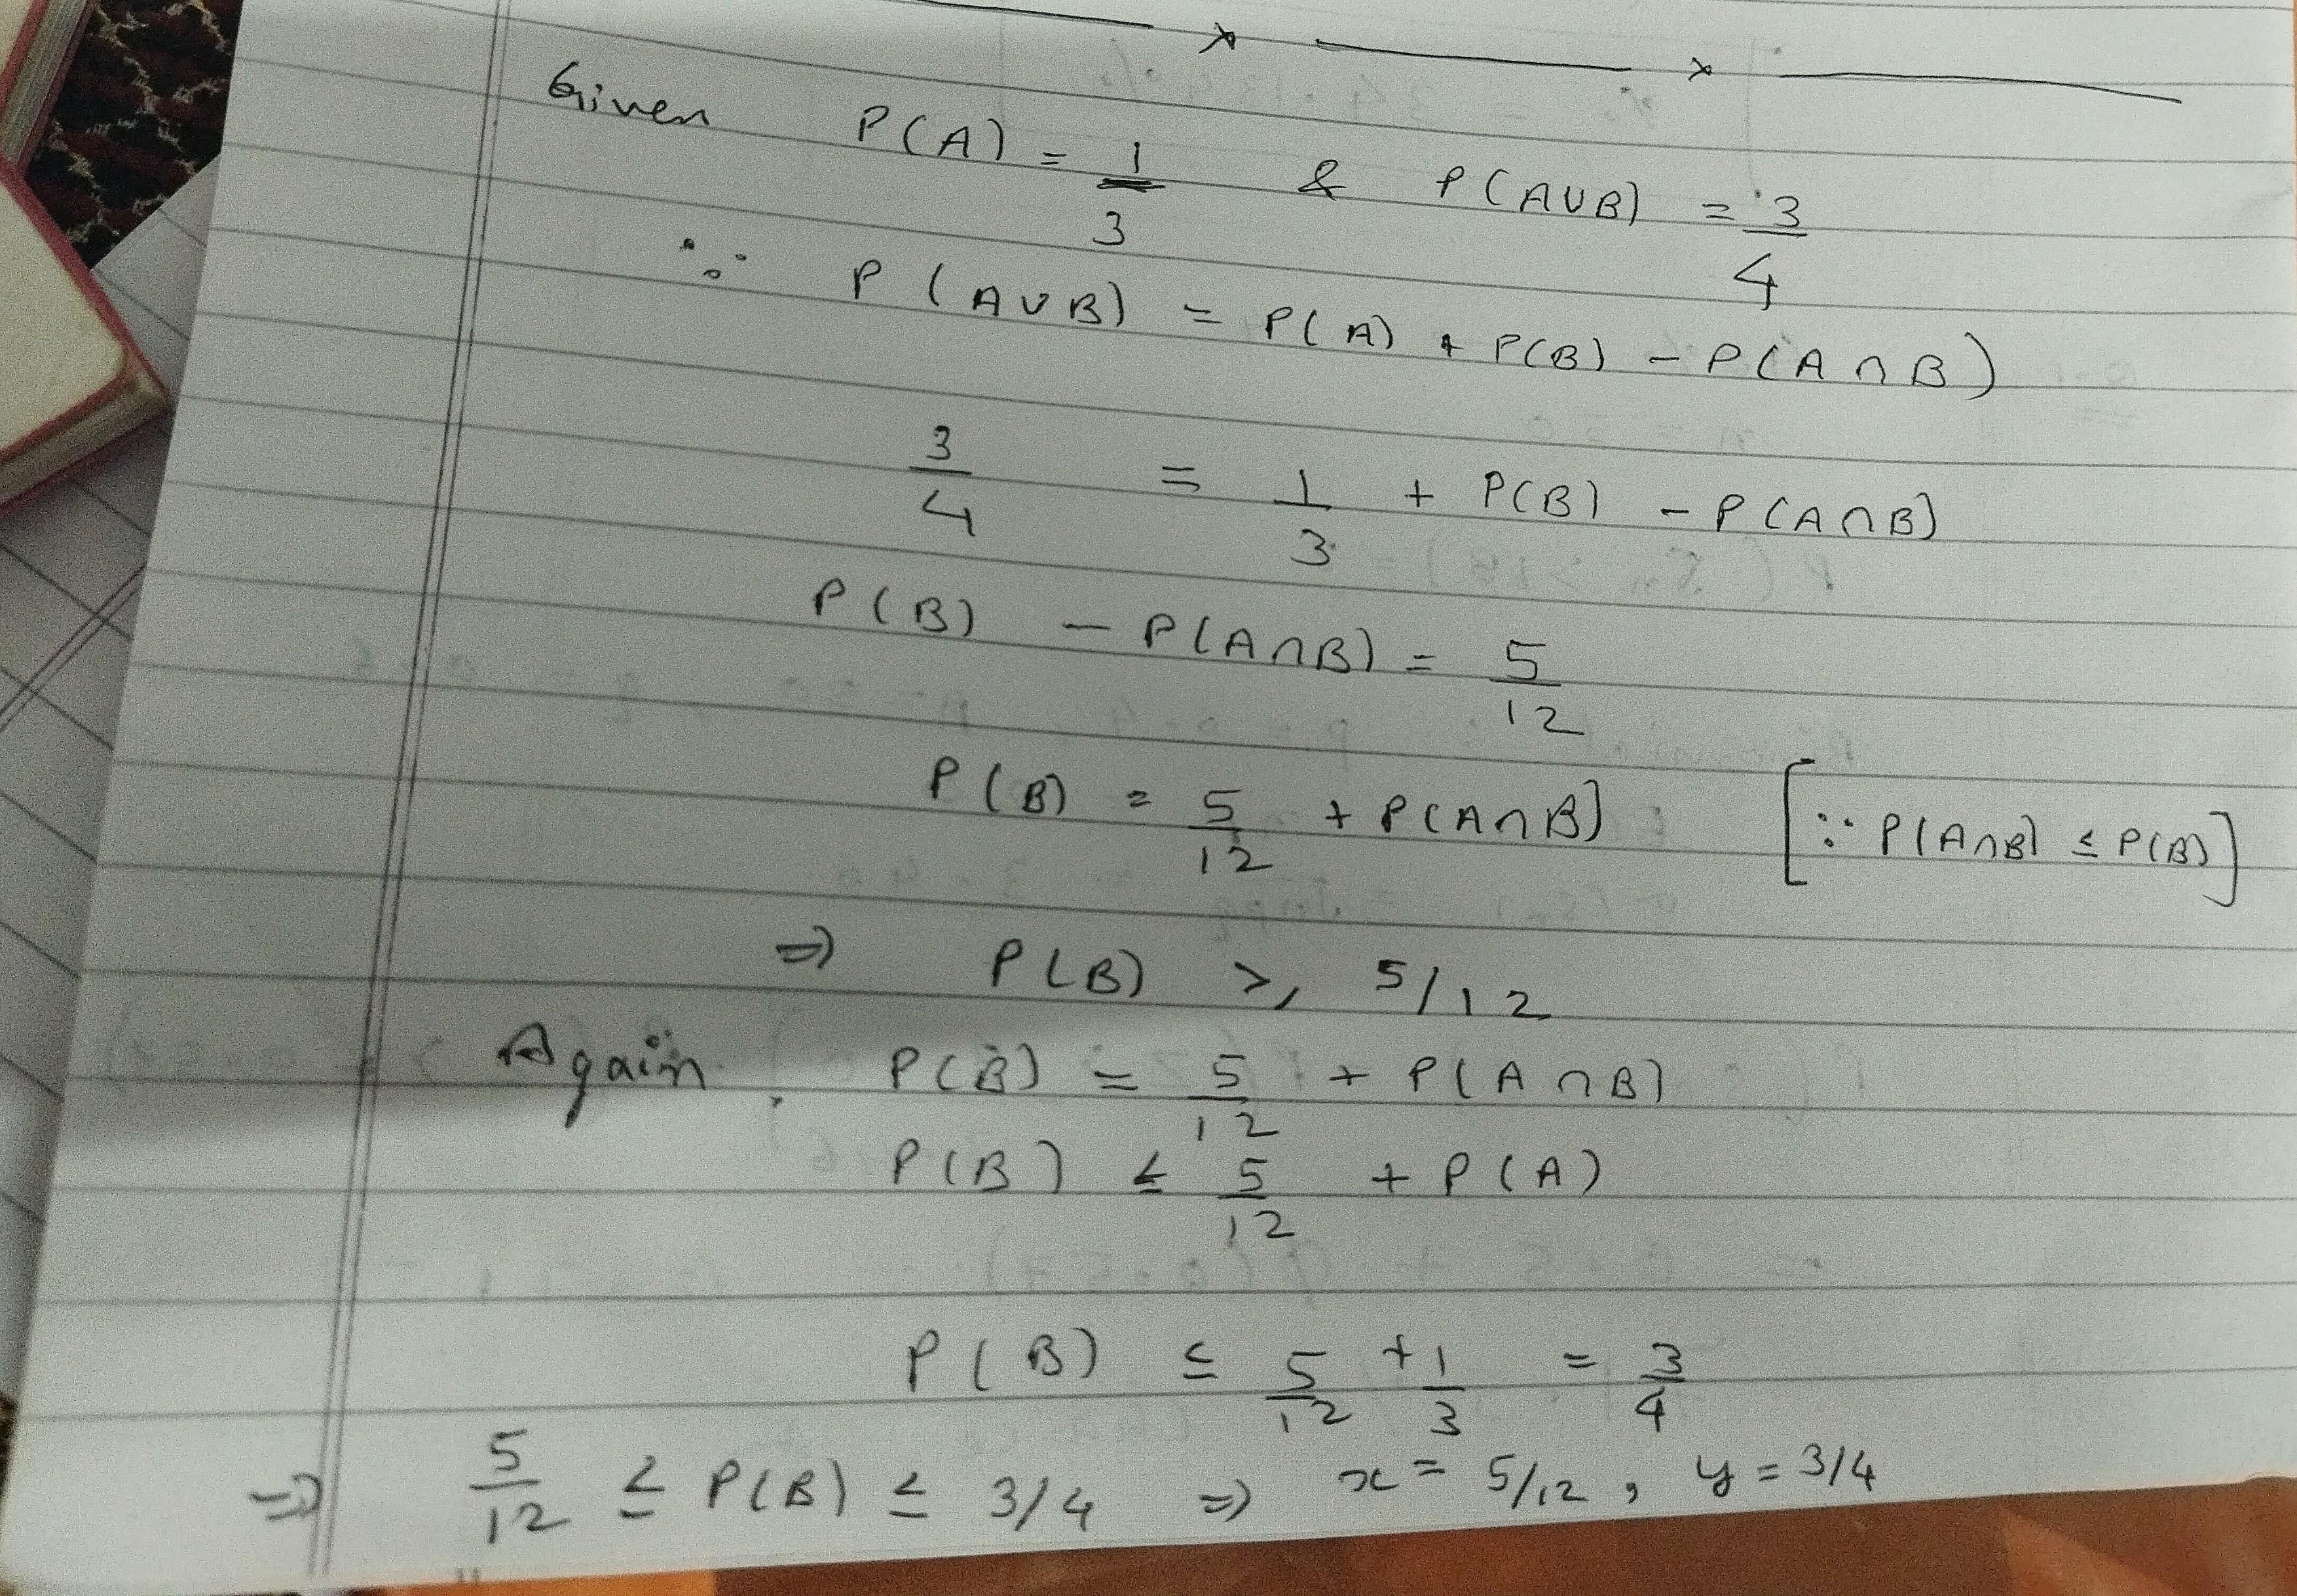 Given P(A) = 1/3 & P(A∪B) = 3/4
∵ P(A∪B) = P(A) + P(B) - P(A∩B)
3/4 = 1/3 + P(B) - P(A∩B)
P(B) - P(A∩B) = 5/12
P(B) = 5/12 + P(A∩B) [∵ P(A∩B) ≤ P(B)]
⇒ P(B) ≥ 5/12
Again, P(B) = 5/12 + P(A∩B)
P(B) ≤ 5/12 + P(A)
P(B) ≤ 5/12 + 1/3 = 3/4
⇒ 5/12 ≤ P(B) ≤ 3/4 ⇒ x = 5/12, y = 3/4